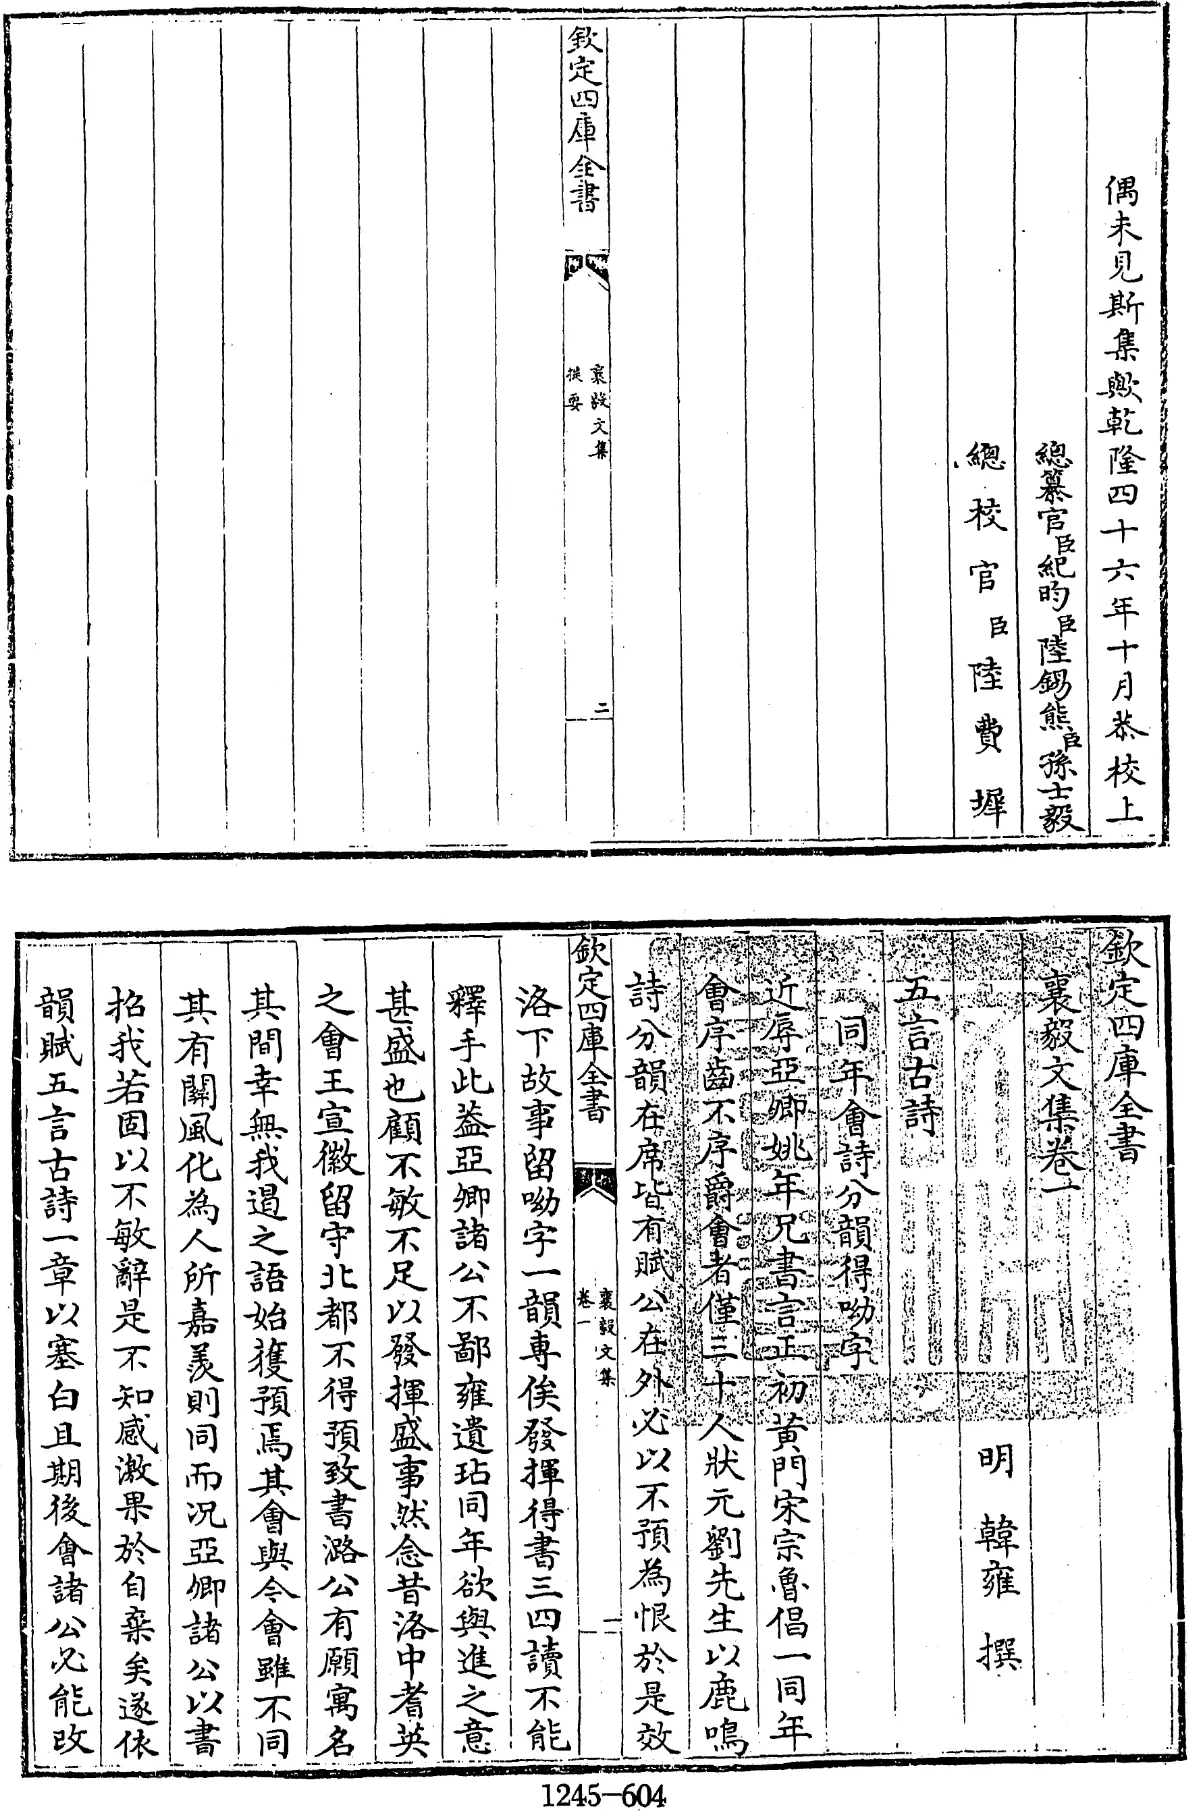 偶未見斯集歟乾隆四十六年十月恭校上
總纂官臣紀昀臣陸錫熊臣孫士毅
總校官臣陸費墀
欽定四庫全書
襄毅文集
提要
二
欽定四庫全書
襄毅文集卷一
明 韓雍 撰
五言古詩
同年會詩分韻得呦字
近辱亞卿姚年兄書言正初黃門宋宗魯倡一同年
會序齒不序爵會者僅三十人狀元劉先生以鹿鳴
詩分韻在席皆有賦公在外必以不預為恨於是效
欽定四庫全書
襄毅文集
卷一
一
洛下故事留呦字一韻專俟發揮得書三四讀不能
釋手此葢亞卿諸公不鄙雍遺玷同年欲與進之意
甚盛也顧不敏不足以發揮盛事然念昔洛中耆英
之會王宣徽留守北都不得預致書潞公有願寓名
其間幸無我遏之語始獲預焉其會與今會雖不同
其有關風化為人所嘉羨則同而况亞卿諸公以書
招我若固以不敏辭是不知感激果於自棄矣遂依
韻賦五言古詩一章以塞白且期後會諸公必能改
1245-604